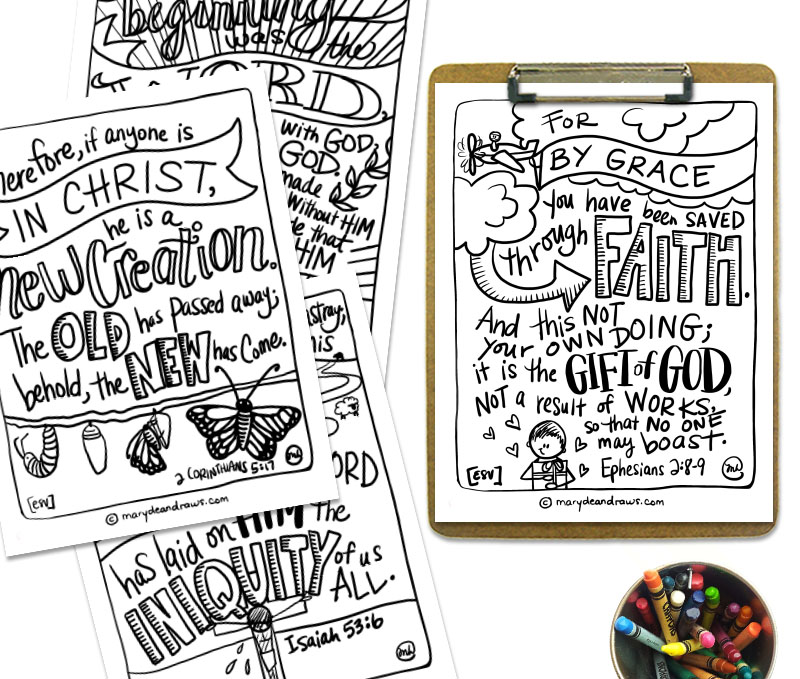 beginning
was the
WORD,
with GOD,
GOD.
made
without HIM
that
HIM
Therefore, if anyone is
IN CHRIST,
he is a
new Creation.
The OLD has passed away;
behold, the NEW has come.
2 CORINTHIANS 5:17
[ESV]
© marydeandraws.com
has laid on HIM the
INIQUITY of us
ALL.
Isaiah 53:6
FOR
BY GRACE
you have been SAVED
through FAITH.
And this NOT
your OWN DOING;
it is the GIFT of GOD,
NOT a result of WORKS,
so that NO ONE
may boast.
[ESV] Ephesians 2:8-9
© marydeandraws.com